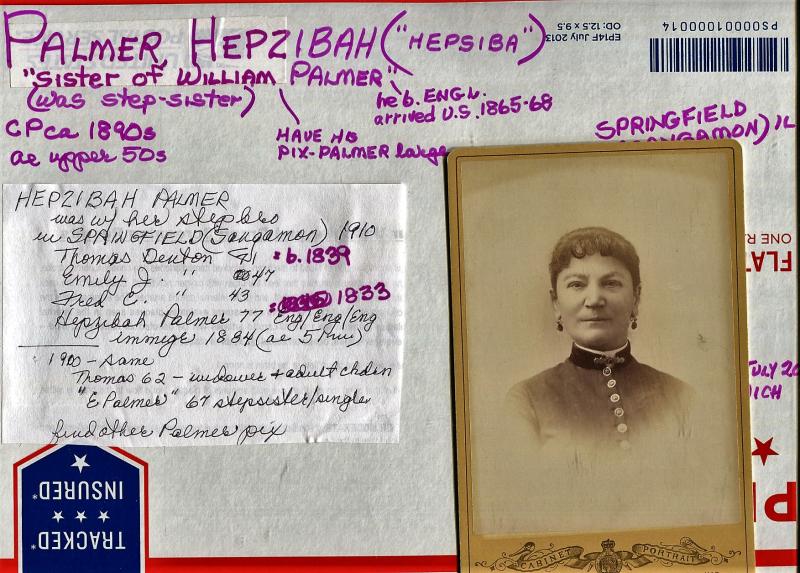 PALMER, HEPZIBAH ("HEPSIBA")
"Sister of WILLIAM PALMER"
(was step-sister)
he b. ENGL.
arrived U.S. 1865-68
CP ca 1890s
ae upper 50s
HAVE
PIX-PALMER large
SPRINGFIELD
IL
EP14F July 2013
OD: 12.5 x 9.5
PS00001000014
HEPZIBAH PALMER
was w/ her stepbro
in SPRINGFIELD (Sangamon) 1910
Thomas Denton 71 = b. 1839
Emily J. " 47
Fred C. " 43
= 1833
Hepzibah Palmer 77 Eng/Eng/Eng
immigr 1834 (ae
1900 - same
Thomas 62 - widower + adult chdn
"E Palmer" 67 stepsister/single
find other Palmer pix
ONE RA
FLAT
JULY 20
ICH
P
TRACKED*
INSURED*
CABINET PORTRAIT